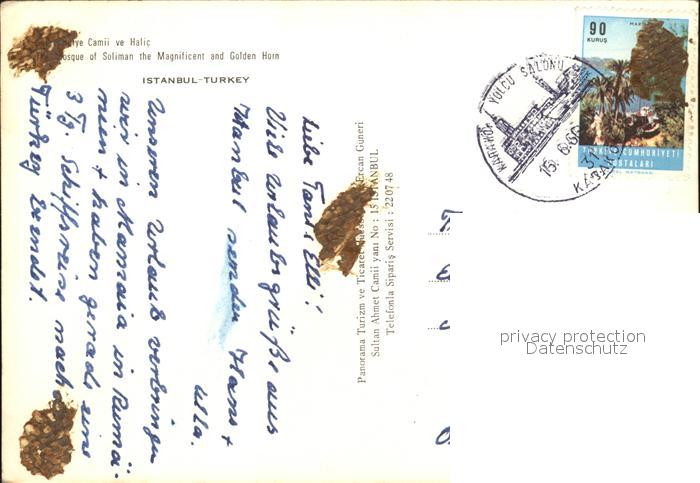 iye Camii ve Haliç
osque of Soliman the Magnificent and Golden Horn
ISTANBUL-TURKEY
Liebe Tante Elli!
Viele Urlaubsgrüße aus
Istanbul senden Hans +
Ulla.
Unseren Urlaub verbringen
wir in Mamaia in Rumä-
nien + haben gerade eine
3 Tg. Schiffsreise nach
Türkey
Panorama Turizm ve Ticaret Ercan Guneri
Sultan Ahmet Camii yanı No : 15 ISTANBUL
Telefonla Sipariş Servisi : 22 07 48
YOLCU SALONU
15.6.66
90
KURUŞ
TÜRKİYE CUMHURİYETİ
POSTALARI
privacy protection
Datenschutz